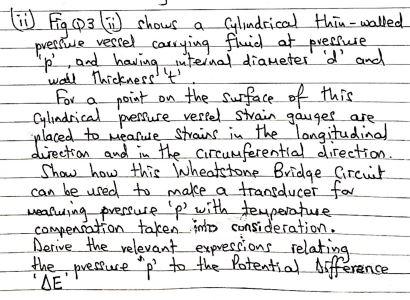 (ii) Fig Q3 (ii) shows a Cylindrical thin-walled
pressure vessel carrying fluid at pressure
'p', and having internal diameter 'd' and
wall thickness 't'.
For a point on the surface of this
Cylindrical pressure vessel strain gauges are
placed to measure strains in the longitudinal
direction and in the circumferential direction.
Show how this Wheatstone Bridge Circuit
can be used to make a transducer for
measuring pressure 'p' with temperature
compensation taken into consideration.
Derive the relevant expressions relating
the pressure "p' to the Potential Difference
'ΔE'